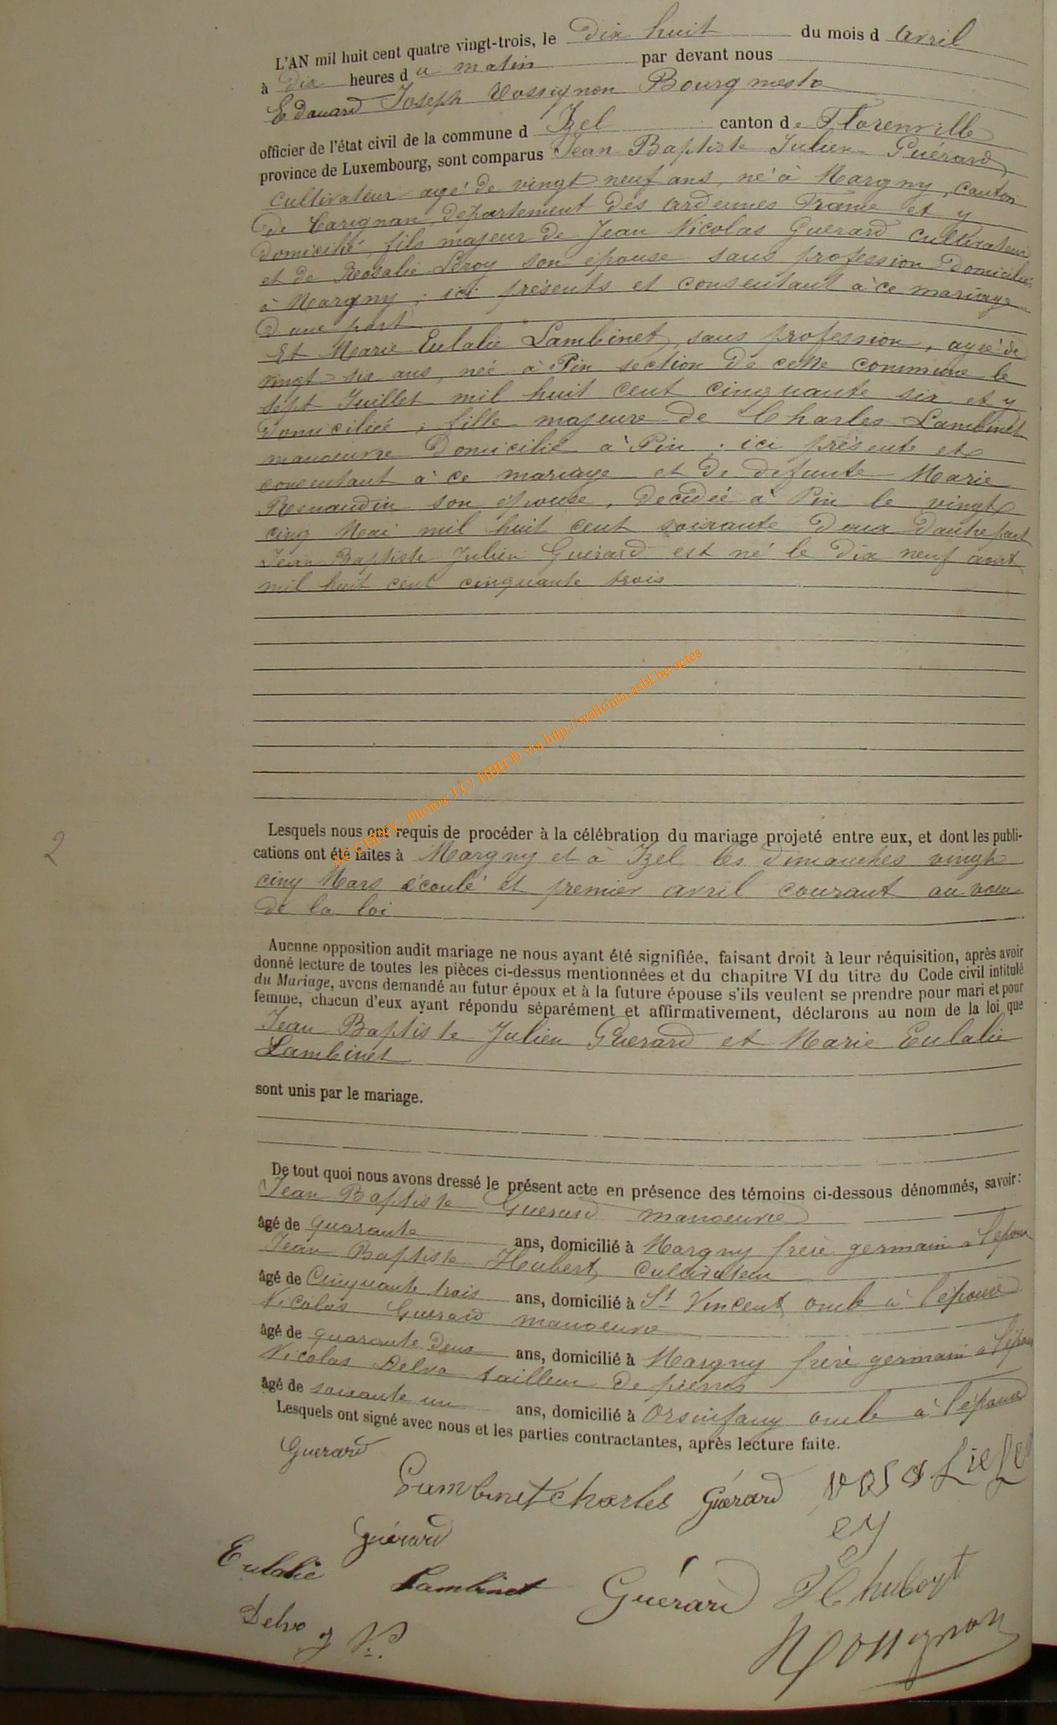 L'AN mil huit cent quatre vingt-trois, le dix huit du mois d avril
à dix heures d u matin par devant nous
Edouard Joseph Rossignon Bourgmestre
officier de l'état civil de la commune d Izel canton de Florenville
province de Luxembourg, sont comparus Jean Baptiste Julien Guérard
cultivateur agé de vingt neuf ans, né à Margny, canton
de Carignan, département des ardennes France et y
domicilié, fils majeur de Jean Nicolas Guerard cultivateur
et de Rosalie Leroy son épouse sans profession domiciliés
à Margny, ici présents et consentant à ce mariage
d'une part
Et Marie Eulalie Lambinet, sans profession, agée de
vingt six ans, née à Pin section de cette commune le
sept Juillet mil huit cent cinquante six et y
domiciliée, fille majeure de Charles Lambinet
manoeuvre domicilié à Pin, ici présente et
consentant à ce mariage et de défunte Marie
Renaudin son épouse, décédée à Pin le vingt
cinq Mai mil huit cent soixante deux d'autre part
Jean Baptiste Julien Guérard est né le dix neuf aout
mil huit cent cinquante trois
2
Lesquels nous ont requis de procéder à la célébration du mariage projeté entre eux, et dont les publi-
cations ont été faites à Margny et à Izel les dimanches vingt
cinq Mars écoulé et premier avril courant au vœu
de la loi
Aucune opposition audit mariage ne nous ayant été signifiée, faisant droit à leur réquisition, après avoir
donné lecture de toutes les pièces ci-dessus mentionnées et du chapitre VI du titre du Code civil intitulé
du Mariage, avons demandé au futur époux et à la future épouse s'ils veulent se prendre pour mari et pour
femme, chacun d'eux ayant répondu séparément et affirmativement, déclarons au nom de la loi que
Jean Baptiste Julien Guerard et Marie Eulalie
Lambinet
sont unis par le mariage.
De tout quoi nous avons dressé le présent acte en présence des témoins ci-dessous dénommés, savoir:
Jean Baptiste Guerard manoeuvre
âgé de quarante ans, domicilié à Margny frère germain a l'epoux
Jean Baptiste Hubert, cultivateur
âgé de Cinquante trois ans, domicilié à St Vincent oncle à l'épouse
Nicolas Guerard manoeuvre
âgé de quarante deux ans, domicilié à Margny frère germain a l'époux
Nicolas Delva tailleur de pierres
âgé de soixante un ans, domicilié à Orsinfaing oncle à l'épouse
Lesquels ont signé avec nous et les parties contractantes, après lecture faite.
Guerard
Lambinet Charles Guérard
Guérard
Eulalie Lambinet Guérard
Delvo
Rossignon